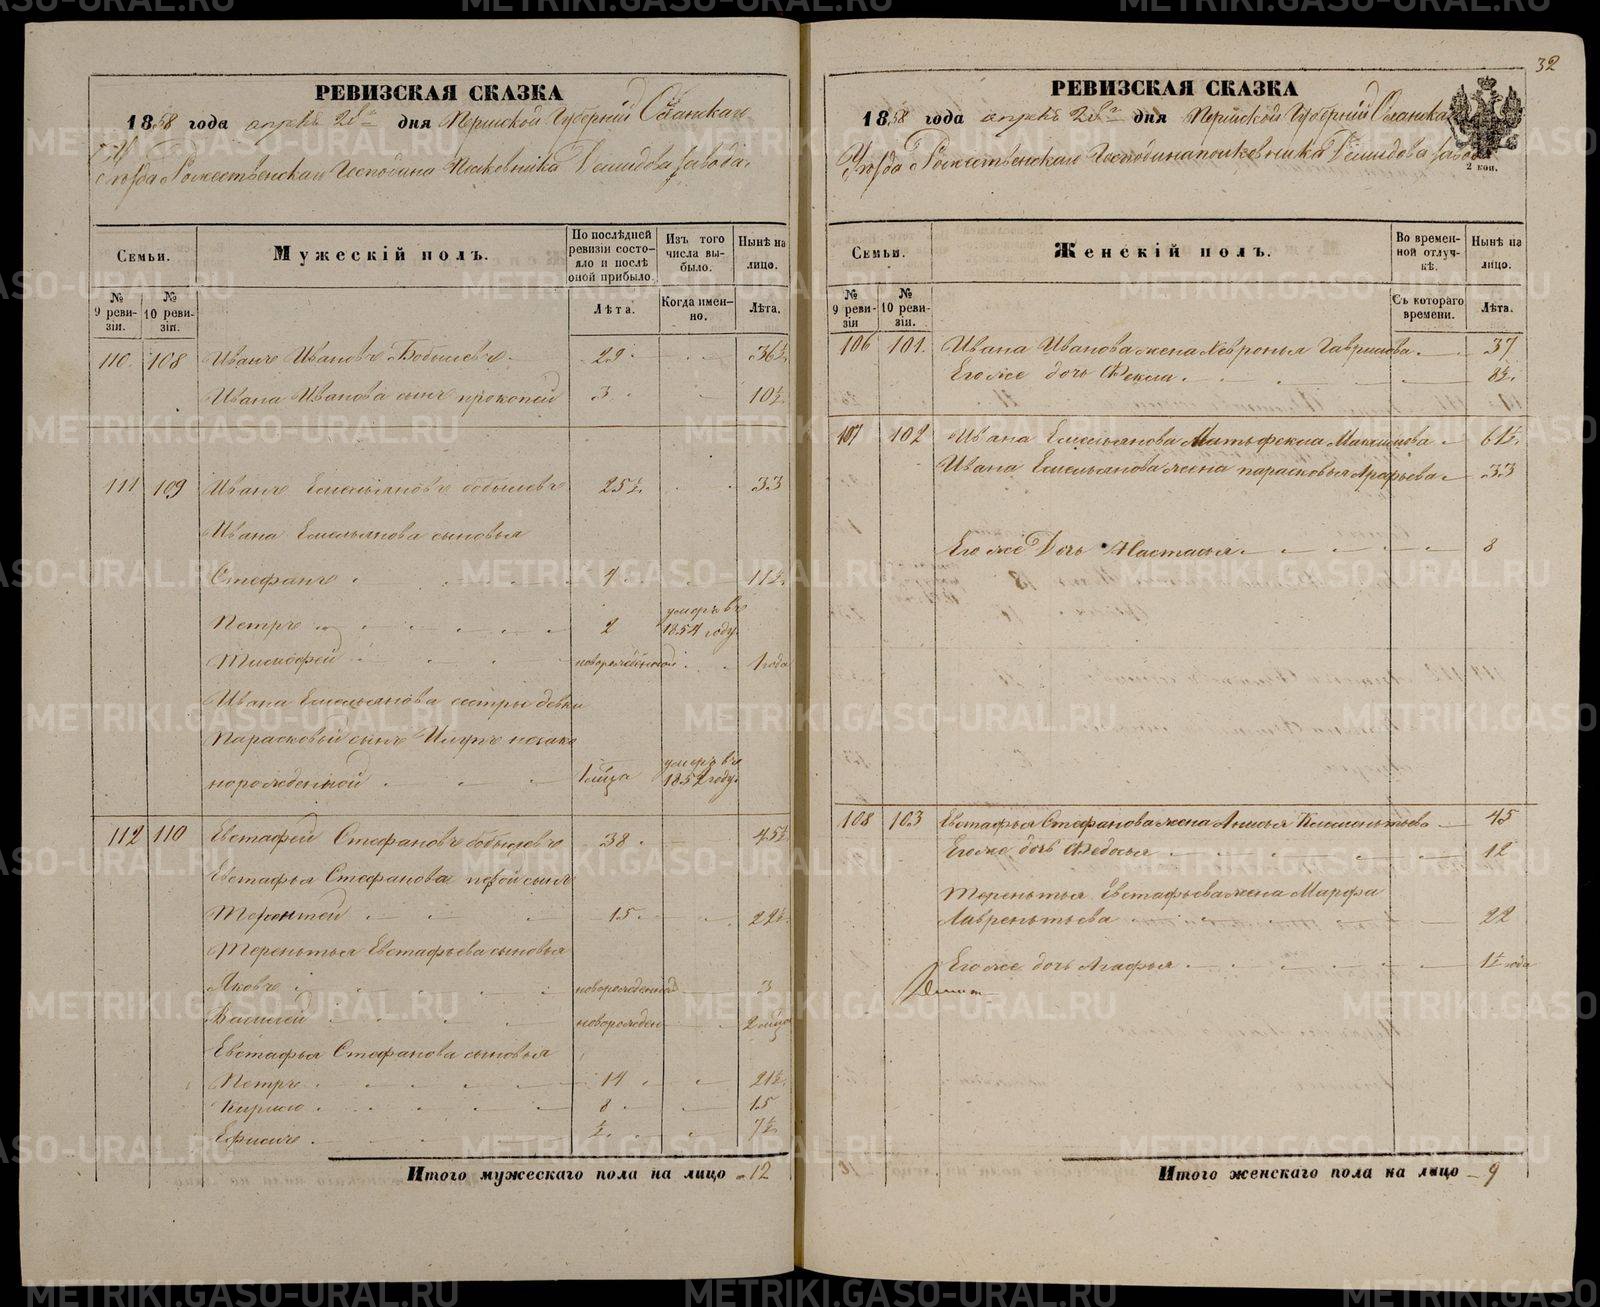 32
РЕВИЗСКАЯ СКАЗКА
1858 года апреля 28го дня Пермской Губернiи Оханскаго
Уезда Рожественскаго Господина Полковника Демидова завода.
Семьи.
Мужескiй полъ.
По послѣдней ревизiи состояло и послѣ оной прибыло.
Изъ того числа выбыло.
Нынѣ на лицо.
№ 9 ревизiи.
№ 10 ревизiи.
Лѣта.
Когда именно.
Лѣта.
110. 108 Иванъ Ивановъ Бобылевъ. 29. 36½.
Ивана Иванова сынъ прокопей 3 10½.
111 109 Иванъ Емельяновъ бобылевъ 25½. 33
Ивана Емельянова сыновья
Стефанъ 4 11½.
Петръ 2 умеръ въ 1854 году.
Тимофей новорожденной 1 года
Ивана Емельянова сестры девки
Парасковьи сынъ незако
норожденной умеръ въ 1852 году.
112 110 Евстафей Стефановъ бобылевъ 38. 45½
Евстафья Стефанова первой сынъ
Терентей 15. 22½.
Терентья Евстафьева сыновья
Яковъ новорожденной 3
Василей новорожден 2
Евстафья Стефанова сыновья
Петръ 14 21½.
Кирило 8 15
Ефимъ ½. 7½.
Итого мужескаго пола на лицо 12
РЕВИЗСКАЯ СКАЗКА
1858 года апреля 28го дня Пермской Губернiи Оханскаго
Уезда Рожественскаго Господина полковника Демидова завода
2 коп.
Семьи.
Женскiй полъ.
Во временной отлучкѣ.
Нынѣ на лицо.
№ 9 ревизiи
№ 10 ревизiи.
Съ котораго времени.
Лѣта.
106 101. Ивана Иванова жена Хевронья Гаврилова 37
Его же дочь Фекла 8½.
107 102 Ивана Емельянова Мать фекла Максимова 61½.
Ивана Емельянова жена парасковья 33
Его же Дочь Настасья 8
108 103 Евстафья Стефанова жена Анисья Клементьева 45
Его же дочь Федосья 12
Терентья Евстафьева жена Марфа
Лаврентьева 22
Его же дочь Агафья 1½ года
Итого женскаго пола на лицо 9
METRIKI.GASO-URAL.RU